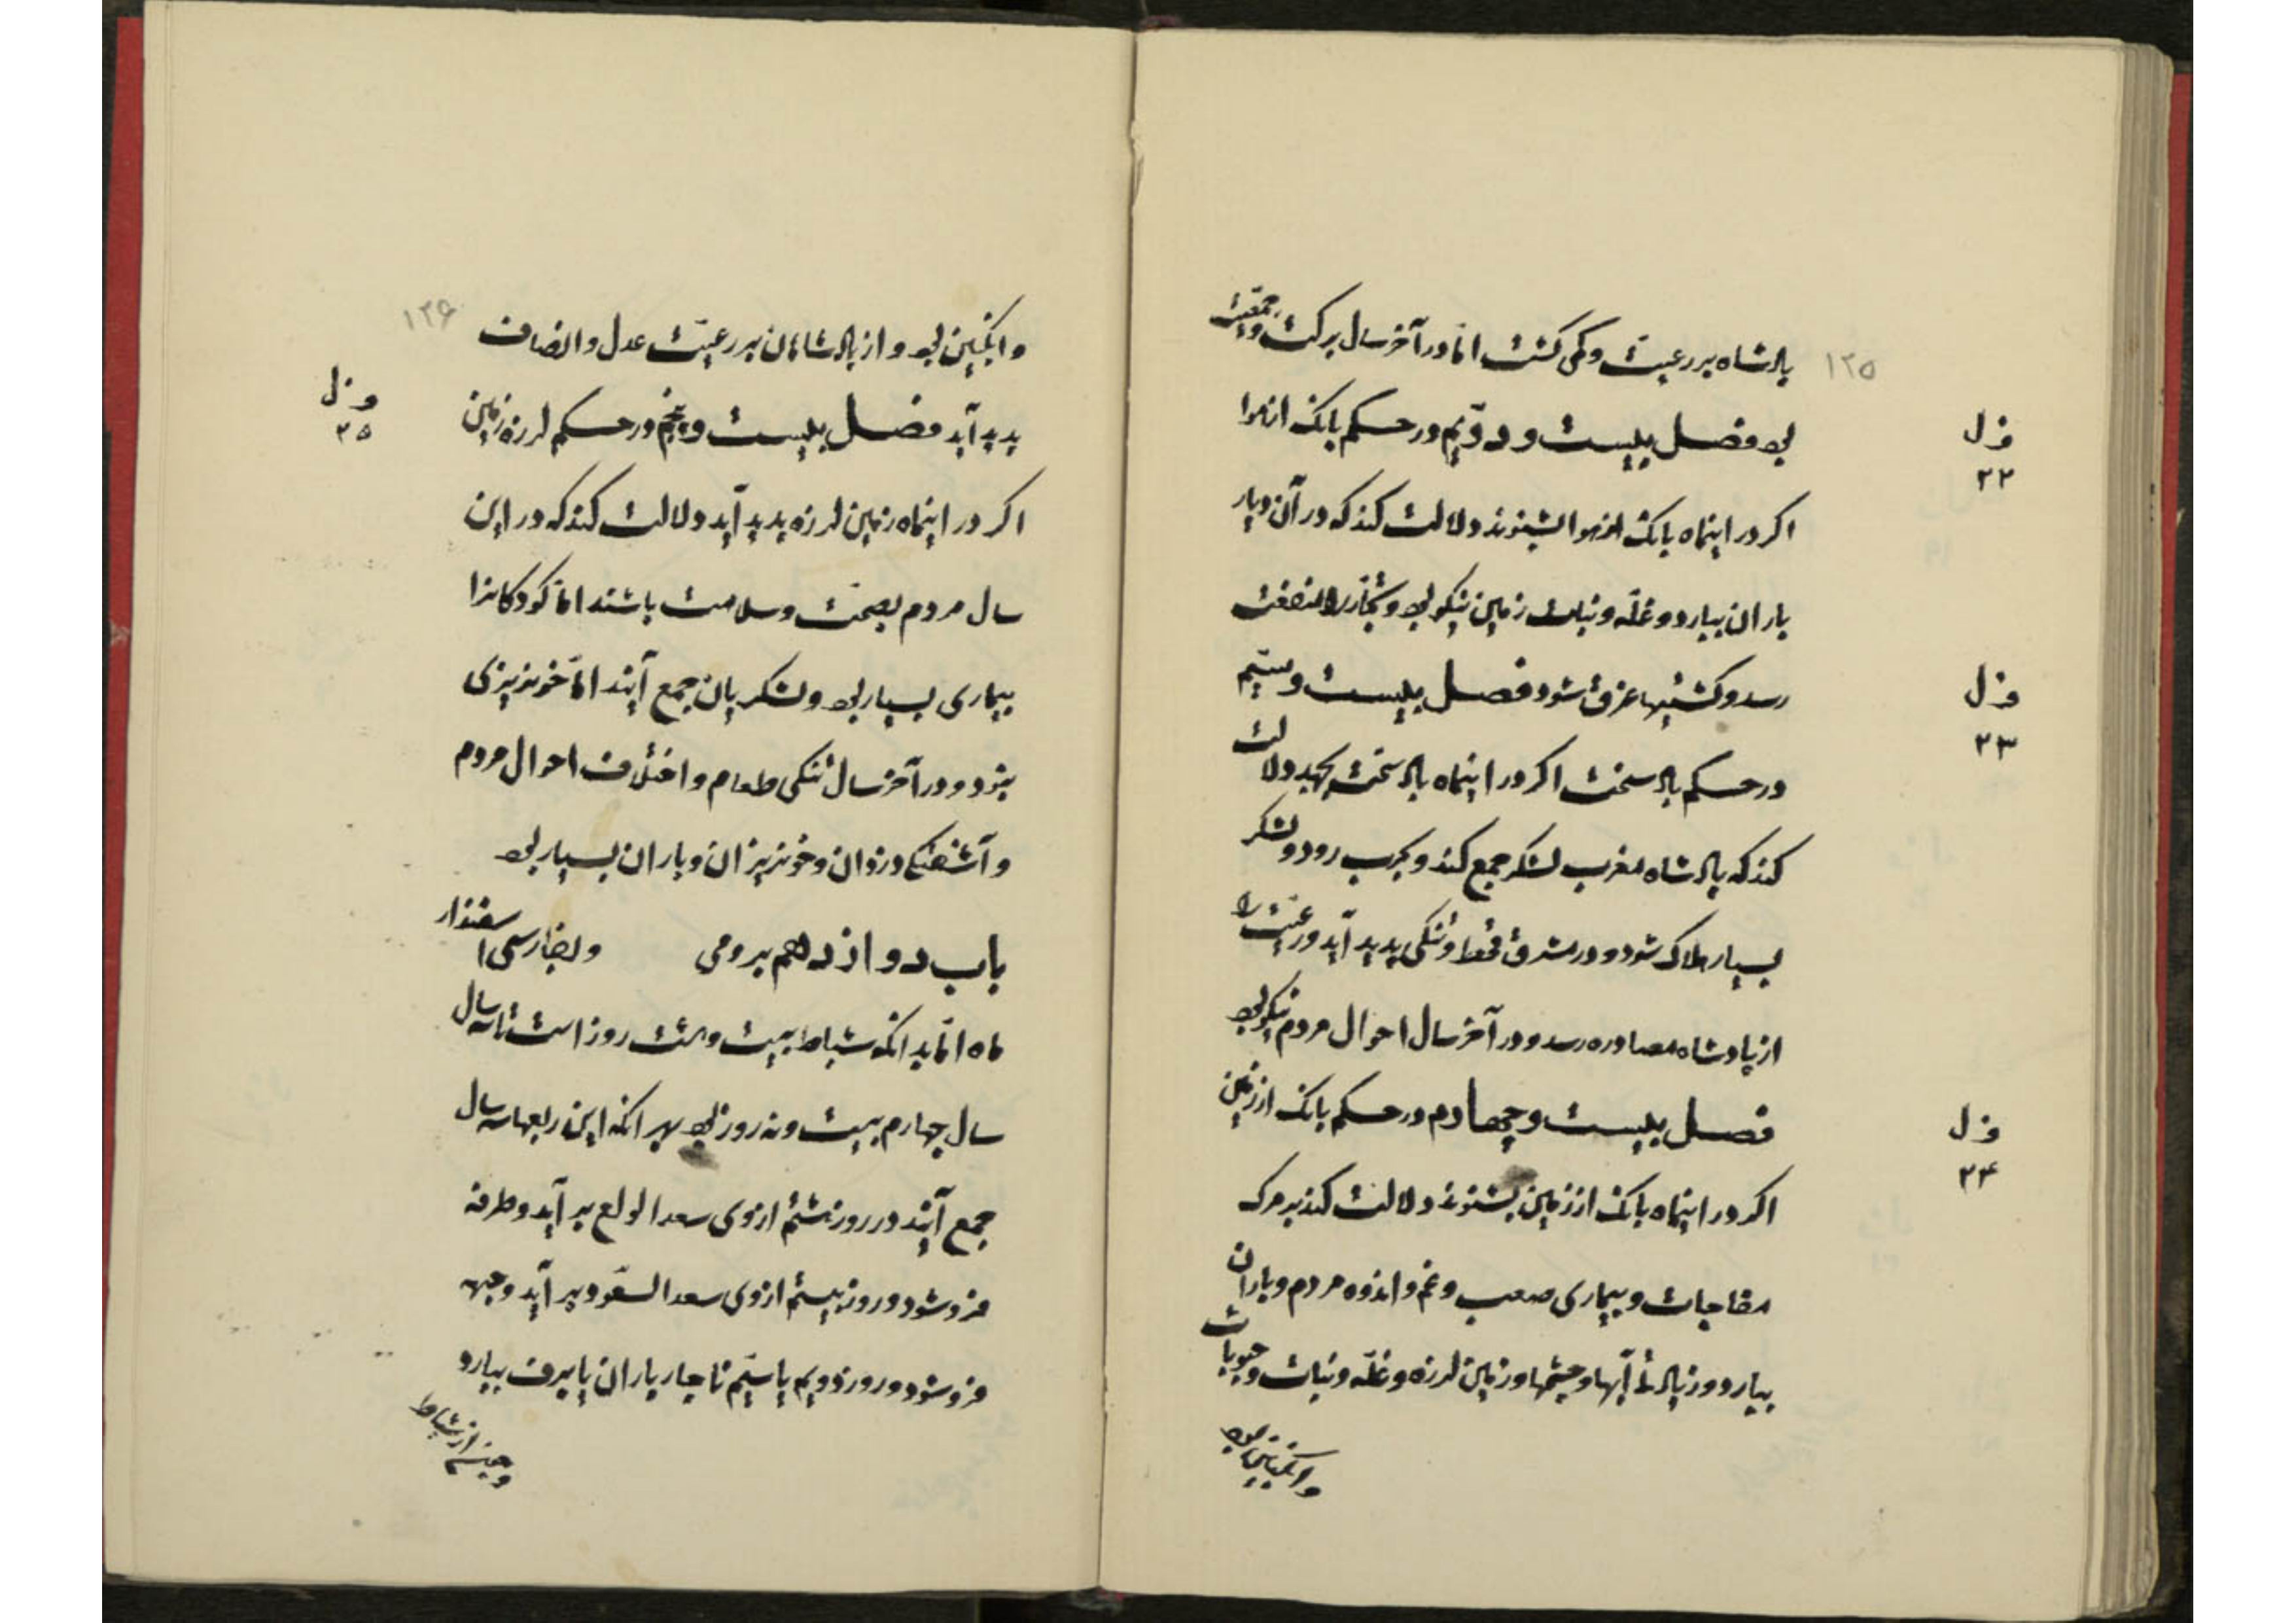 ۱۲۵
پادشاه بر رعیت و کمی کشت اما در آخر سال برکت و جمعیت
بود فصل بیست و دویم در حکم بانک از هوا
ف ل ۲۲
اکر در اینماه بانک از هوا بشنوند دلالت کند که در آن دیار
باران ببارد و غله و نبات زمین نیکو بود و تجار را منفعت
رسد و کشتیها غرق شود فصل بیست و سیم
ف ل ۲۳
در حکم باد سخت اکر در اینماه باد سخت بجهد دلالت
کند که پادشاه مغرب لشکر جمع کند و بحرب رود و لشکر
بسیار هلاک شود و در مشرق قحط و تنکی پدید آید و رعیت را
از پادشاه مصادره رسد و در آخر سال احوال مردم نیکو بود
فصل بیست و چهارم در حکم بانک از زمین
ف ل ۲۴
اکر در اینماه بانک از زمین بشنوند دلالت کند بر مرک
مفاجات و بیماری صعب و غم و اندوه مردم و باران
ببارد و زیادتی آبها و چشمها و زمین لرزه و غله و نبات و حبوبات
وانکبین بود
۱۲۶
وانکبین بود و از پادشاهان بر رعیت عدل و انصاف
پدید آید فصل بیست و پنجم در حکم لرزه زمین
ف ل ۲۵
اکر در اینماه زمین لرزه پدید آید دلالت کند که در این
سال مردم بصحت و سلامت باشند اما کودکانرا
بیماری بسیار بود و لشکریان جمع آیند اما خونریزی
نبود و در آخر سال تنکی طعام و اختلاف احوال مردم
و آشفتکی دزدان و خونریزان و باران بسیار بود
باب دوازدهم برومی و بفارسی اسفندار
ماه اما بدانکه شباط بیست و هشت روز است تا سه سال
سال چهارم بیست و نه روز بود بهر انکه این ربعها سه سال
جمع آیند در روز هشتم از وی سعد البلع بر آید و طرفه
فرو شود و روز بیستم از وی سعد السعود بر آید و جبهه
فرو شود و روز دویم یا سیم ناچار باران یا برف ببارد
از شباط